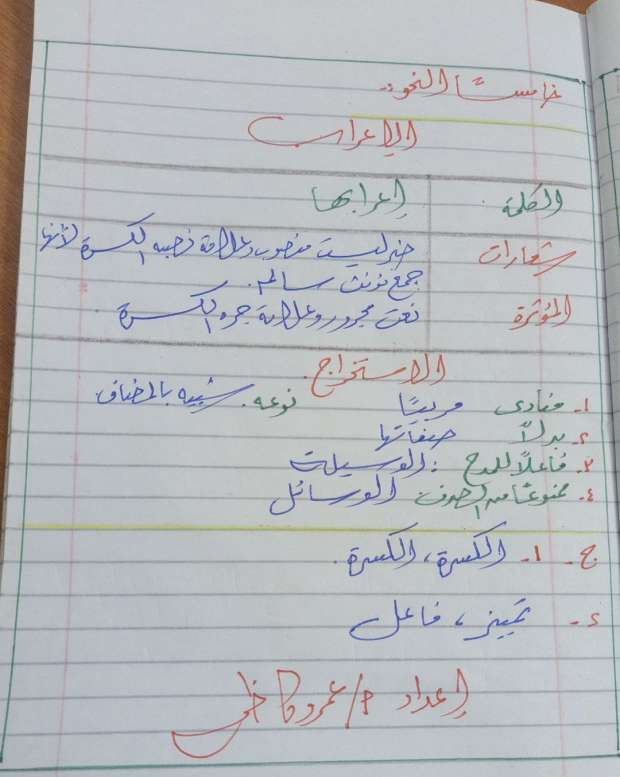 خامسًا النحو:-
الإعراب
الكلمة إعرابها
شعارات خبر ليست منصوب وعلامة نصبه الكسرة لأنها
جمع مؤنث سالم.
المؤثرة نعت مجرور وعلامة جره الكسرة.
الاستخراج.
١- منادى مربيًا نوعه. شبيه بالمضاف
٢- بدلاً صفاتها
٣- فاعلاً للمدح : الوسيلة
٤- ممنوعًا من الصرف الوسائل
ج - ١- الكسرة، الكسرة.
٢- تمييز، فاعل
إعداد أ/ عمرو